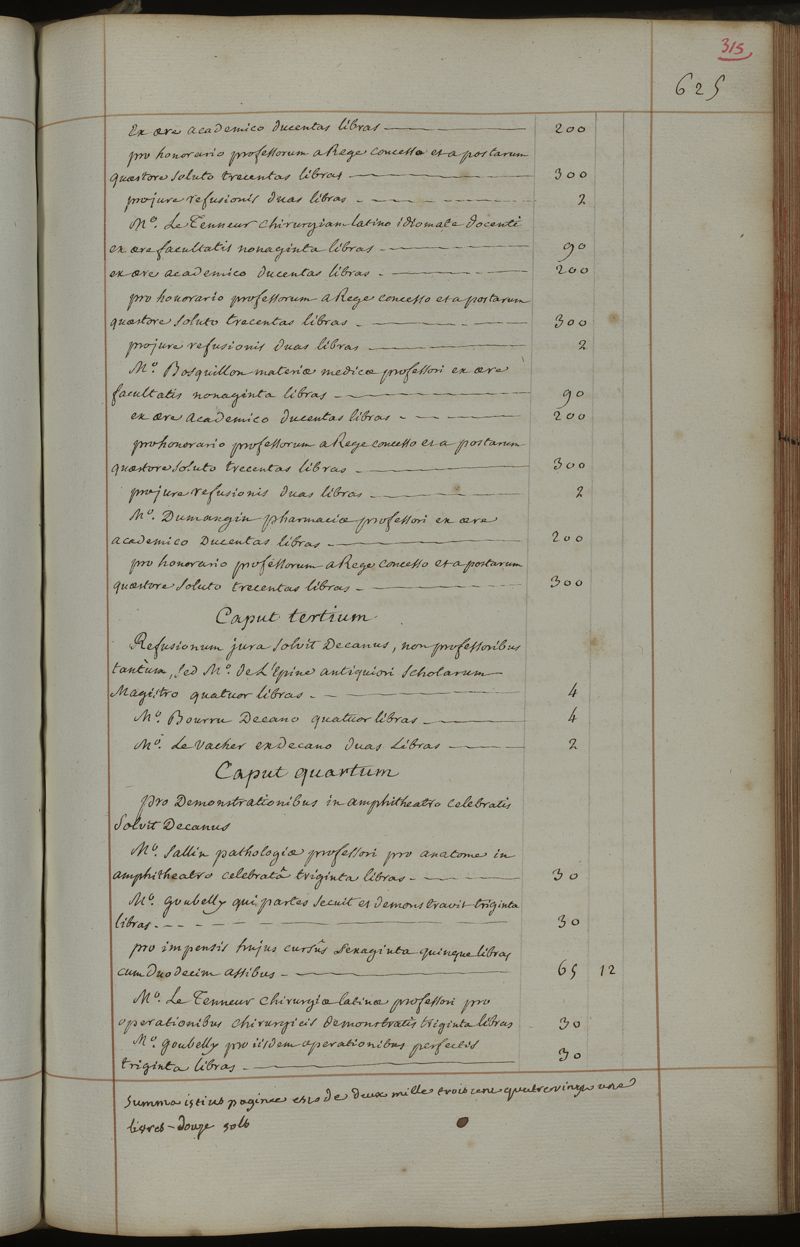 315
625
Ex ære academico ducentas libras — 200
pro honorario professorum a Rege concesso et a postarum
quæstore soluto trecentas libras — 300
pro jure refusionis duas libras — 2
Mo. Le Tenneur chirurgiam latino idiomate docenti
ex ære facultatis nonaginta libras — 90
ex ære academico ducentas libras — 200
pro honorario professorum a Rege concesso et a postarum
quæstore soluto trecentas libras — 300
pro jure refusionis duas libras — 2
Mo. Bosquillon materiæ medicæ professori ex ære
facultatis nonaginta libras — 90
ex ære academico ducentas libras — 200
pro honorario professorum a Rege concesso et a postarum
quæstore soluto trecentas libras — 300
pro jure refusionis duas libras — 2
Mo. Dumangin pharmaciæ professori ex ære
academico ducentas libras — 200
pro honorario professorum a Rege concesso et a postarum
quæstore soluto trecentas libras — 300
Caput tertium
Refusionum jura solvit Decanus, non professoribus
tantùm, sed Mo. de L'Epine antiquiori scholarum
Magistro quatuor libras — 4
Mo. Bourru Decano quatuor libras — 4
Mo. Le Vacher exdecano duas Libras — 2
Caput quartum
pro Demonstrationibus in amphitheatro celebratis
Solvit Decanus
Mo. Sallin pathologiæ professori pro anatome in
amphitheatro celebratâ triginta libras — 30
Mo. Goubelly qui partes secuit et demonstravit triginta
libras — 30
pro impensis hujus cursûs sexaginta quinque libras
cum duodecim assibus — 65 12
Mo. Le Tenneur chirurgiæ latinæ professori pro
operationibus chirurgicis demonstratis triginta libras 30
Mo. Goubelly pro iisdem operationibus perfectis
triginta libras — 30
Summa istius paginæ est de deux mille trois cent quatrevingt une
livres - douze sols